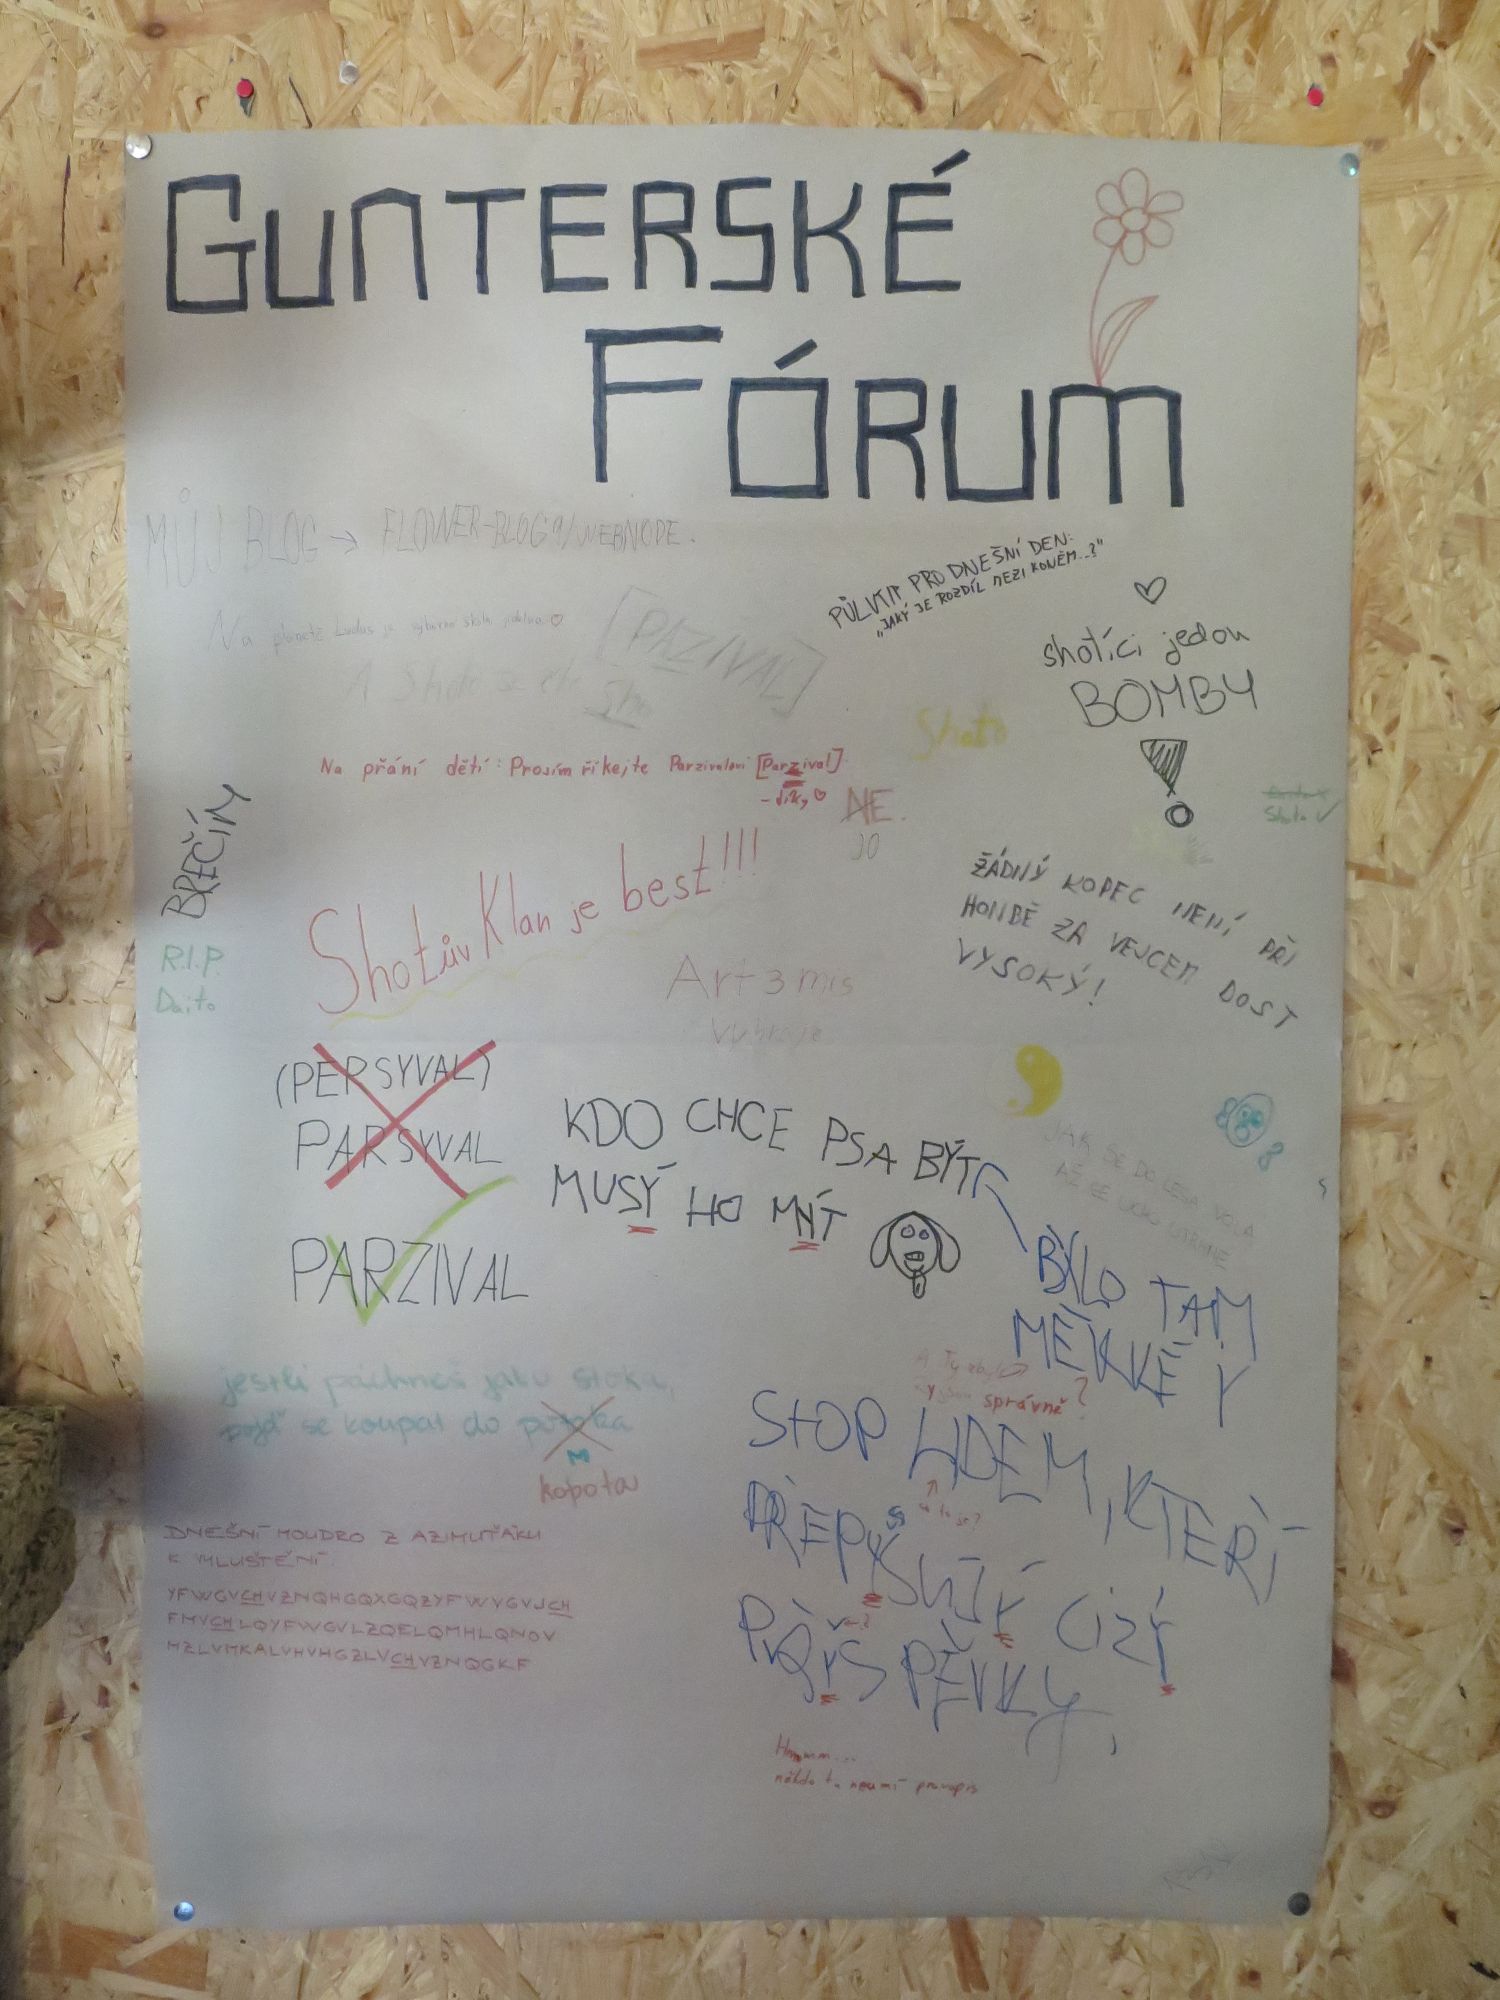 GUNTERSKÉ
FÓRUM
MŮJ BLOG → FLOWER-BLOG9/WEBNODE.
PŮLVTIP PRO DNEŠNÍ DEN:
„JAKÝ JE ROZDÍL MEZI KONĚM..?"
Na planetě Ludus je výborná školní jídelna ♡
[PAZIVAL]
A Shoto se
shotíci jedou
BOMBY
Shoto
Na přání dětí: Prosím říkejte Parzivalovi [Parzival]
- díky ♡
NE.
JO
Shoto ✓
BREČÍM
R.I.P.
Daito
Shotův Klan je best!!!
ŽÁDNÝ KOPEC NENÍ PŘI
HONBĚ ZA VEJCEM DOST
VYSOKÝ!
Art3mis
vyhraje
(PERSYVAL)
PARSYVAL
PARZIVAL
KDO CHCE PSA BÝT
MUSÝ HO MNÝT
JAK SE DO LESA VOLÁ
AŽ SE UCHO UTRHNE
BYLO TAM
MĚKKÉ Y
jestli páchneš jako stoka,
pojď se koupat do potoka
M
kopota
A Ty
správně?
STOP LIDEM, KTEŘÍ
PŘEPYSUJÝ CIZÝ
PŘÝSPĚVKY
DNEŠNÍ MOUDRO Z AZIMUŤÁKU
K VLUŠTĚNÍ:
YFWGVCHVZNQHGQXGQZYFWVGVJCH
FMVCHLQYFWGVLZQELQMHLQNOV
MZLVMKALVHVHGZLVCHVZNQGKF
Hmmmm...
někdo tu neumí pravopis